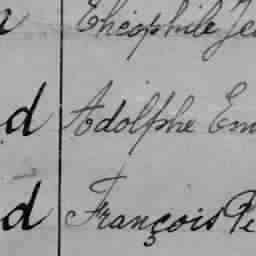 Théophile Je
d Adolphe Em
d François Pe